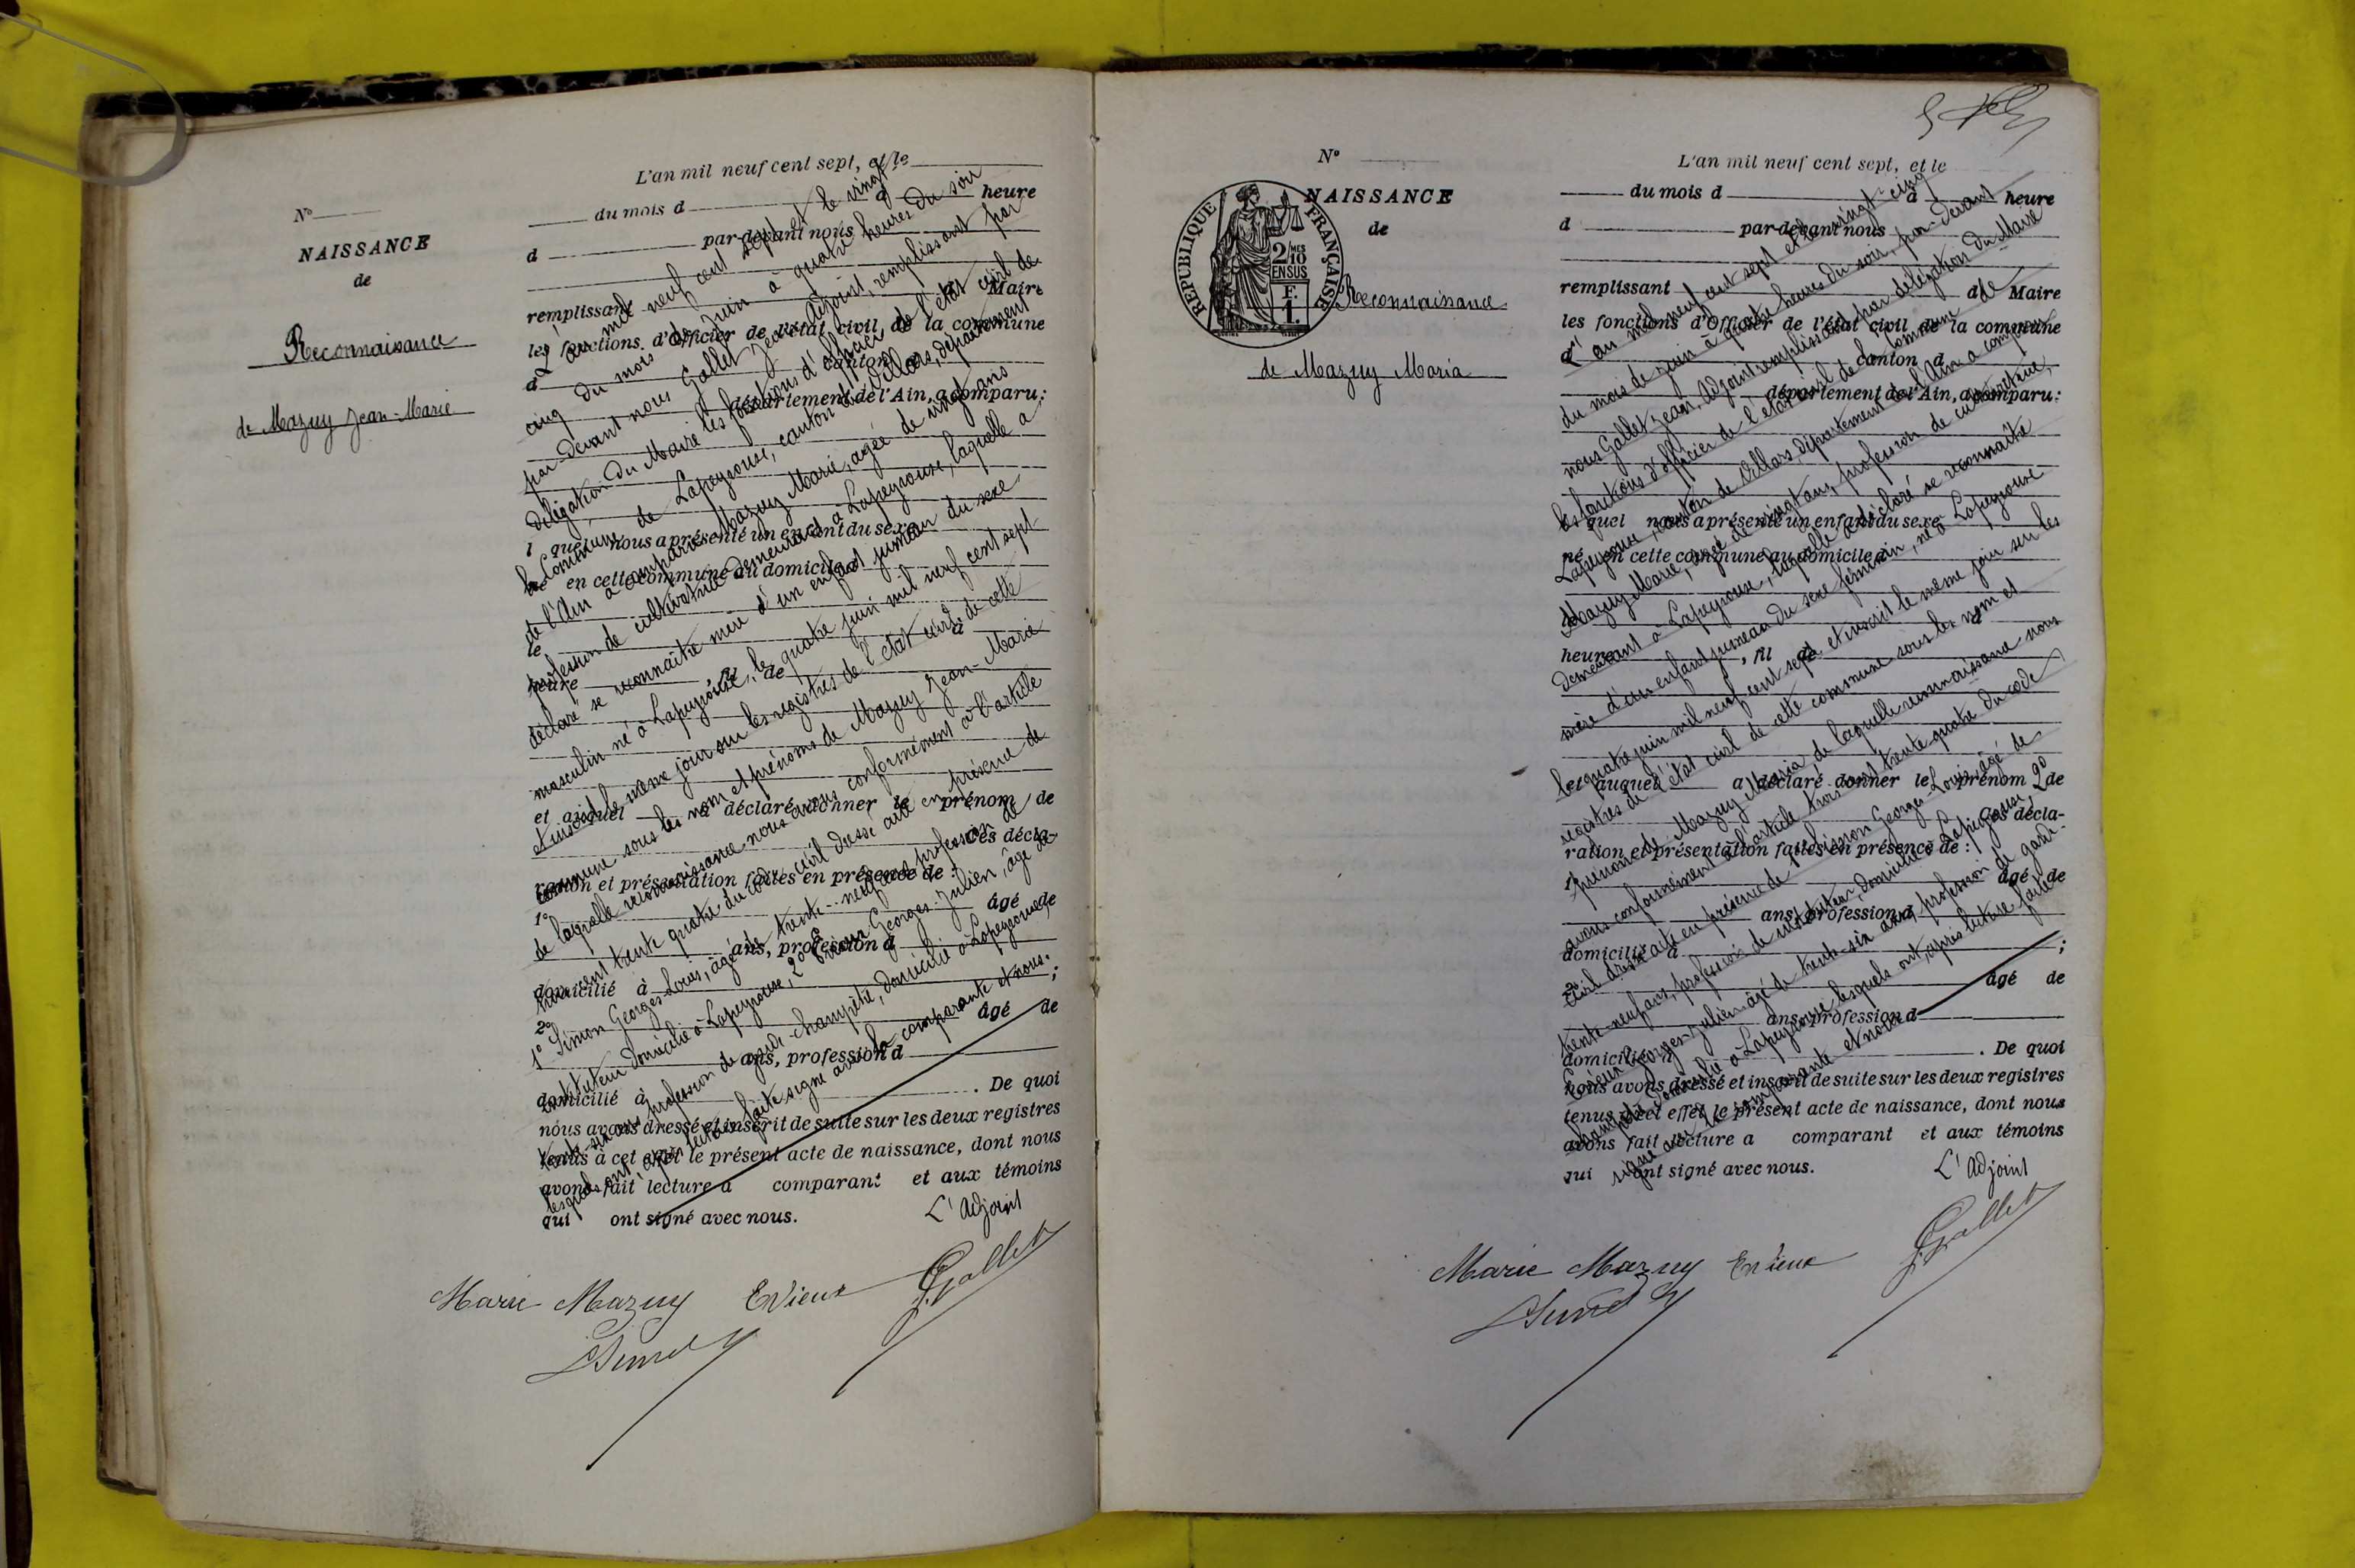 N°
NAISSANCE
de
Reconnaissance
de Mazuy Jean-Marie
L'an mil neuf cent sept, et le
du mois d à heure
d par-devant nous
remplissant d Maire
les fonctions d'Officier de l'état civil de la commune
d canton d
département de l'Ain, a comparu:
l quel nous a présenté un enfant du sexe
né en cette commune au domicile d
le à
heure , fil de
et auquel a déclaré donner le prénom de
Ces décla-
ration et présentation faites en présence de :
1° âgé de
ans, profession d
domicilié à ;
2° âgé de
ans, profession d
domicilié à . De quoi
nous avons dressé et inscrit de suite sur les deux registres
tenus à cet effet le présent acte de naissance, dont nous
avons fait lecture a comparant et aux témoins
qui ont signé avec nous.
L'an mil neuf cent sept et le vingt
cinq du mois de Juin à quatre heures du soir
par-devant nous Gallet Jean adjoint, remplissant par
délégation du Maire les fonctions d'officier de l'état civil de
la Commune de Lapeyrouse, canton de Villars, département
de l'Ain a comparu Mazuy Marie, agée de vingt ans
profession de cultivatrice demeurant à Lapeyrouse, laquelle a
déclaré se reconnaître mère d'un enfant jumeau du sexe
masculin né à Lapeyrouse, le quatre juin mil neuf cent sept
et inscrit le même jour sur les registres de l'état civil de cette
commune sous les nom et prénoms de Mazuy Jean-Marie
de laquelle reconnaissance nous avons conformément à l'article
trois cent trente quatre du code civil dressé acte en présence de
1° Simon Georges-Louis, âgé de trente-neuf ans, profession de
instituteur domicilié à Lapeyrouse, 2° Envieux Georges-Julien, âgé de
trente-six ans profession de garde-champêtre, domicilié à Lapeyrouse,
lesquels ont après lecture faite signé avec la comparante et nous.
L'Adjoint
Marie Mazuy Envieux Gallet
N°
NAISSANCE
de
RÉPUBLIQUE FRANÇAISE
2/10 MES
EN SUS
F.
1.
Reconnaissance
de Mazuy Maria
L'an mil neuf cent sept, et le
du mois d à heure
d par-devant nous
remplissant d Maire
les fonctions d'Officier de l'état civil de la commune
d canton d
département de l'Ain, a comparu:
l quel nous a présenté un enfant du sexe
né en cette commune au domicile d
le à
heure , fil de
et auquel a déclaré donner le prénom de
Ces décla-
ration et présentation faites en présence de :
1° âgé de
ans, profession d
domicilié à ;
2° âgé de
ans, profession d
domicilié à . De quoi
nous avons dressé et inscrit de suite sur les deux registres
tenus à cet effet le présent acte de naissance, dont nous
avons fait lecture a comparant et aux témoins
qui ont signé avec nous.
L'an mil neuf cent sept et le vingt-cinq
du mois de juin à quatre heures du soir, par-devant
nous Gallet Jean, Adjoint remplissant par délégation du Maire
les fonctions d'officier de l'état civil de la Commune de
Lapeyrouse, canton de Villars, département de l'Ain a comparu
Mazuy Marie, agée de vingt ans, profession de cultivatrice,
demeurant à Lapeyrouse, laquelle a déclaré se reconnaître
mère d'un enfant jumeau du sexe féminin, né à Lapeyrouse
le quatre juin mil neuf cent sept et inscrit le même jour sur les
registres de l'état civil de cette commune sous les nom et
prénom de Mazuy Maria de laquelle reconnaissance nous
avons conformément à l'article trois cent trente quatre du code
civil dressé acte en présence de 1° Simon Georges-Louis, âgé de
trente-neuf ans, profession de instituteur, domicilié à Lapeyrouse, 2°
Envieux Georges-Julien âgé de trente-six ans, profession de garde-
champêtre domicilié à Lapeyrouse lesquels ont, après lecture faite
signé avec la comparante et nous.
L'Adjoint
Marie Mazuy Envieux Gallet